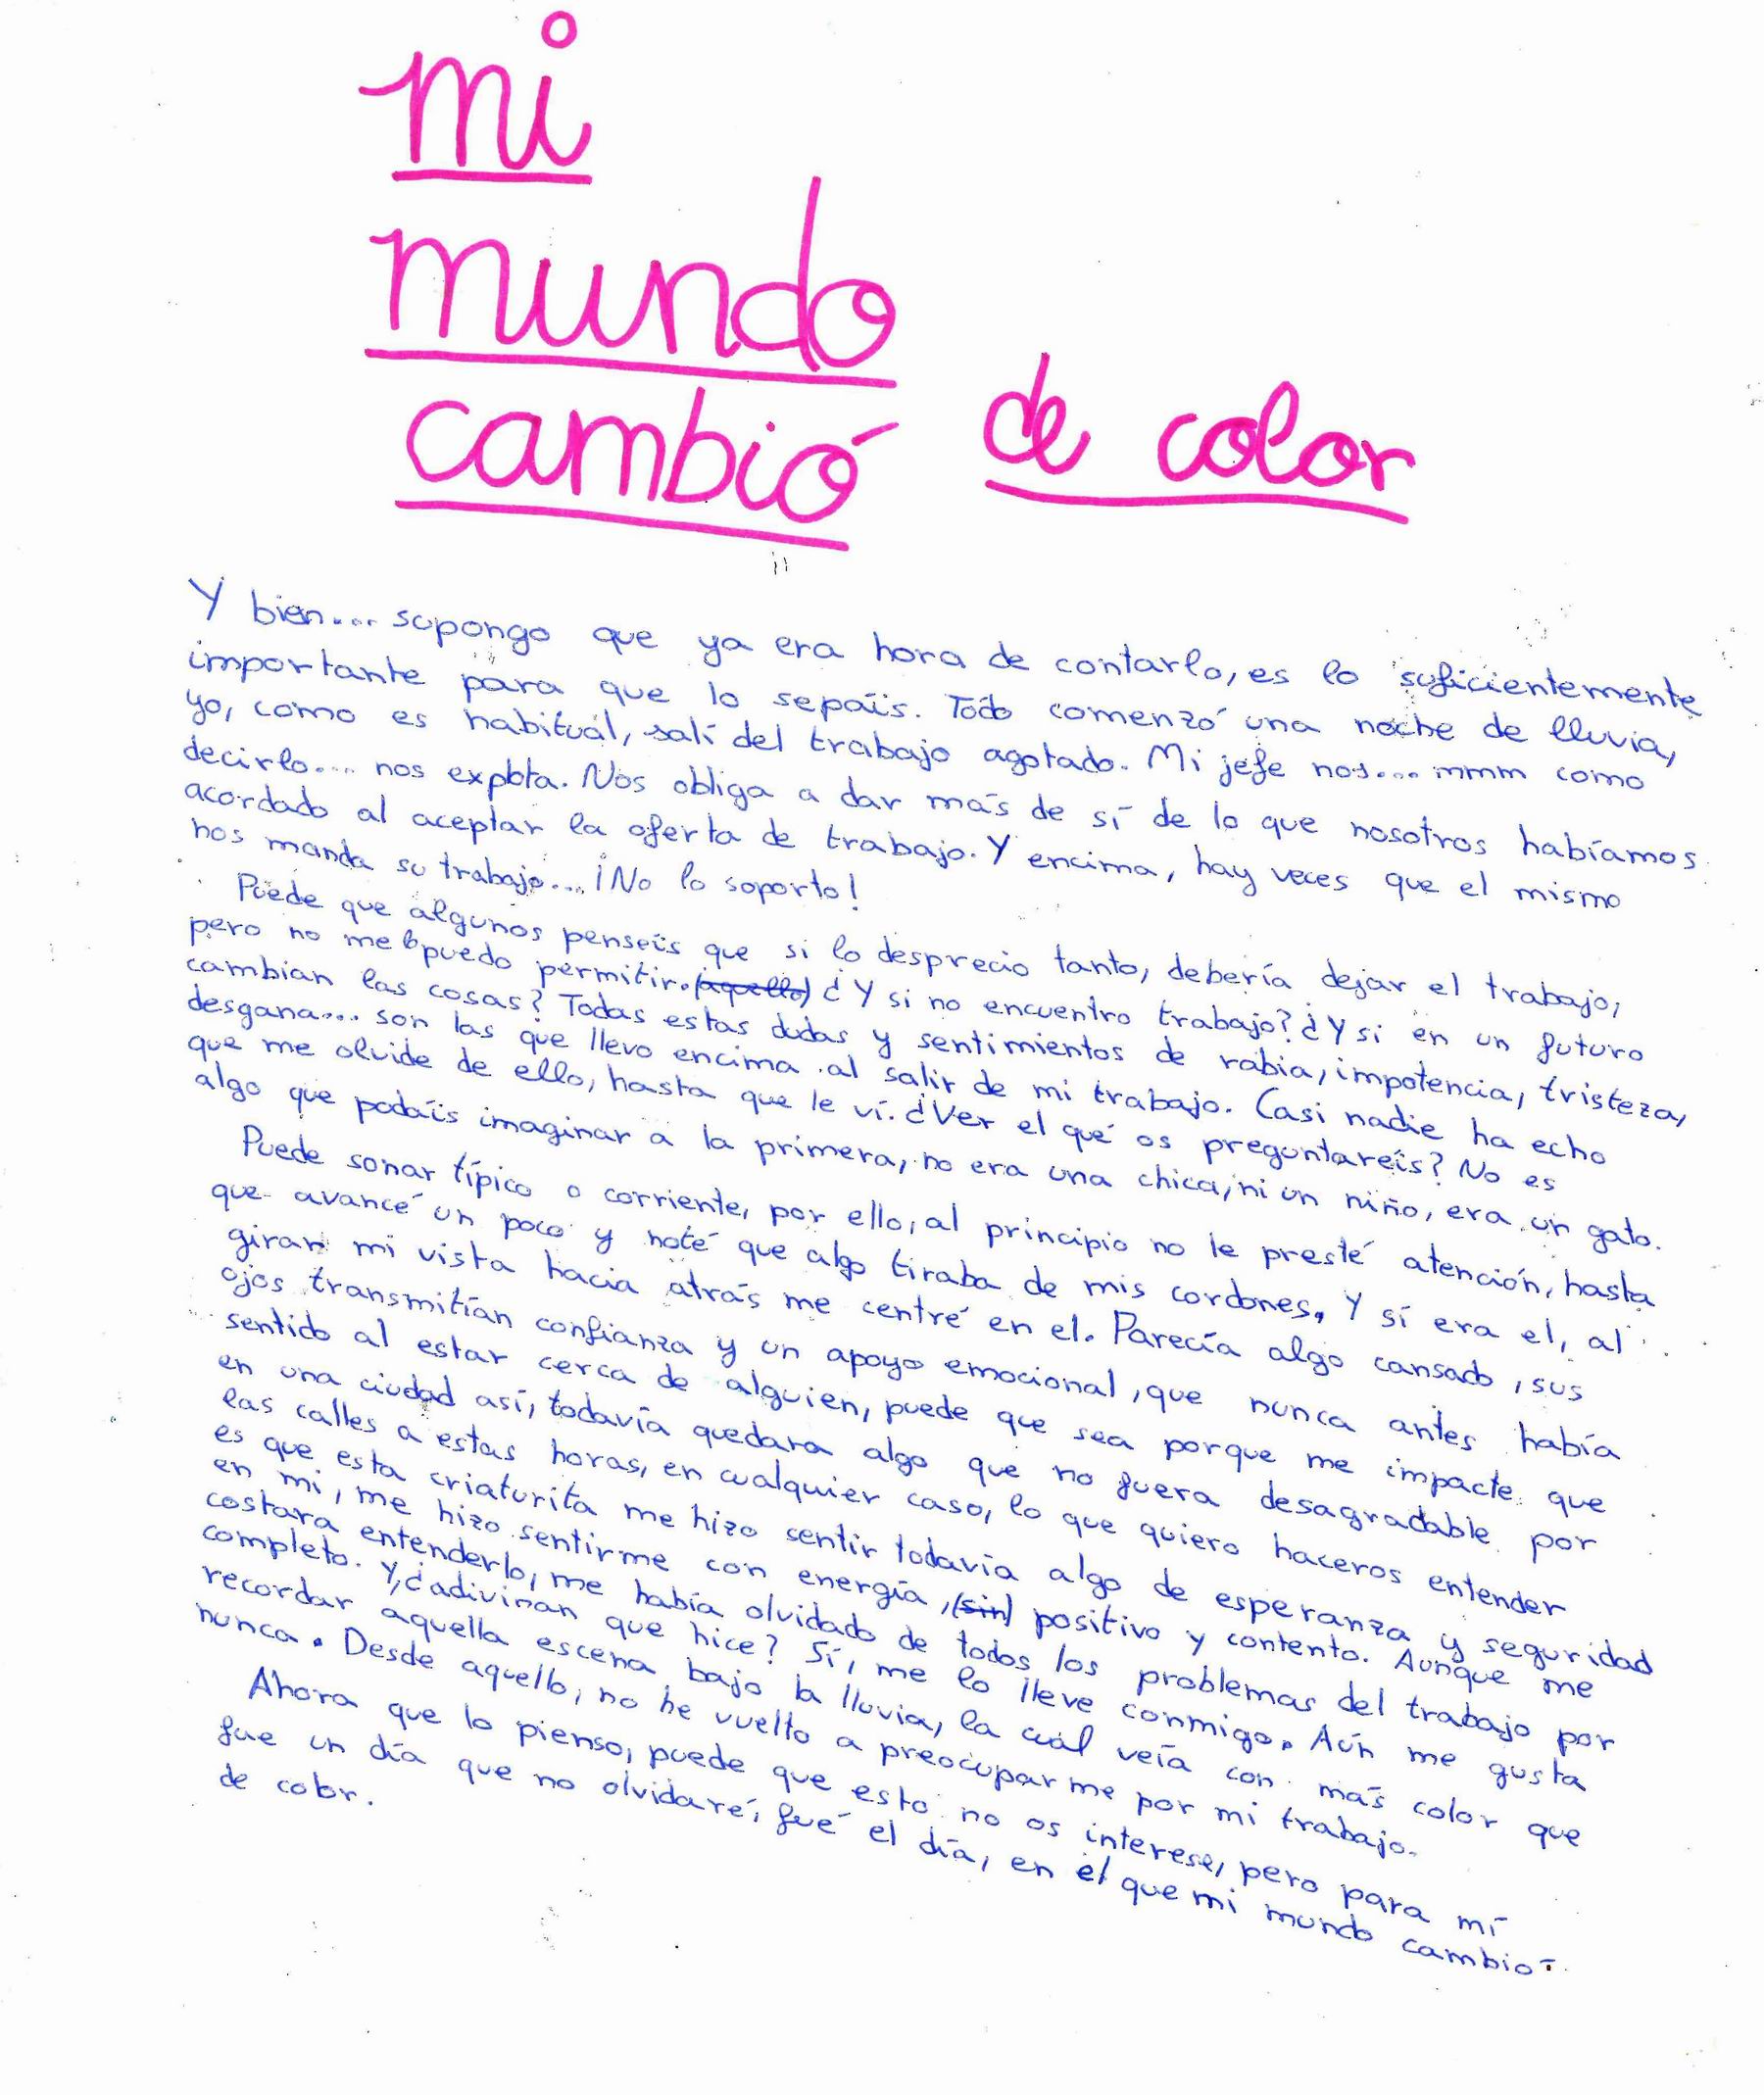 mi
mundo
cambió de color
Y bien... supongo que ya era hora de contarlo, es lo suficientemente
importante para que lo sepaís. Todo comenzó una noche de lluvia,
yo, como es habitual, salí del trabajo agotado. Mi jefe nos... mmm como
decirlo... nos explota. Nos obliga a dar más de sí de lo que nosotros habíamos
acordado al aceptar la oferta de trabajo. Y encima, hay veces que el mismo
nos manda su trabajo... ¡No lo soporto!
Puede que algunos penseís que si lo desprecio tanto, debería dejar el trabajo,
pero no me lo puedo permitir. (aquello) ¿Y si no encuentro trabajo? ¿Y si en un futuro
cambian las cosas? Todas estas dudas y sentimientos de rabia, impotencia, tristeza,
desgana... son las que llevo encima al salir de mi trabajo. Casi nadie ha echo
que me olvide de ello, hasta que le ví. ¿Ver el qué os preguntareís? No es
algo que podaís imaginar a la primera, no era una chica, ni un niño, era un gato.
Puede sonar típico o corriente, por ello, al principio no le presté atención, hasta
que avancé un poco y noté que algo tiraba de mis cordones. Y sí era el, al
girar mi vista hacia atrás me centré en el. Parecía algo cansado, sus
ojos transmitían confianza y un apoyo emocional, que nunca antes había
sentido al estar cerca de alguien, puede que sea porque me impacte que
en una ciudad así, todavía quedara algo que no fuera desagradable por
las calles a estas horas, en cualquier caso, lo que quiero haceros entender
es que esta criaturita me hizo sentir todavía algo de esperanza y seguridad
en mi, me hizo sentirme con energía, (sin) positivo y contento. Aunque me
costara entenderlo, me había olvidado de todos los problemas del trabajo por
completo. Y, ¿adivinan que hice? Sí, me lo lleve conmigo. Aún me gusta
recordar aquella escena bajo la lluvia, la cuál veía con más color que
nunca. Desde aquello, no he vuelto a preocuparme por mi trabajo.
Ahora que lo pienso, puede que esto no os interese, pero para mí
fue un día que no olvidaré, fué el día, en el que mi mundo cambió
de color.